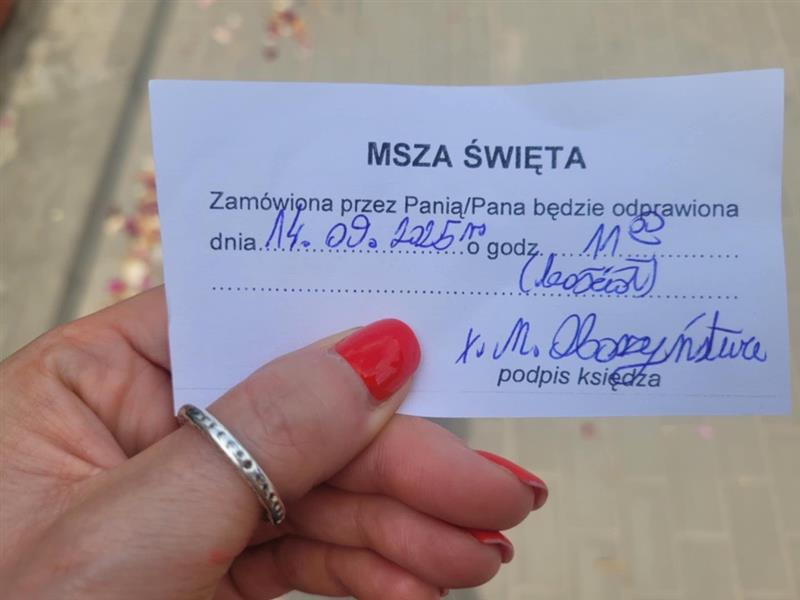 MSZA ŚWIĘTA
Zamówiona przez Panią/Pana będzie odprawiona
dnia 14. 09. 2025 r. o godz. 11 00
(kościół)
x. M.
podpis księdza